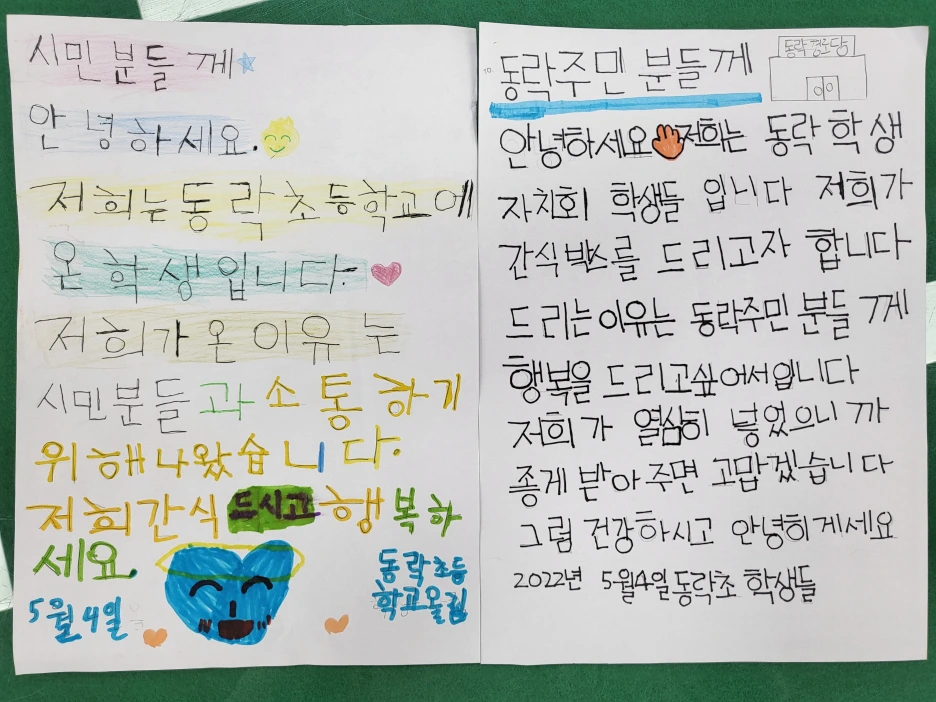 시민분들께
안녕하세요.
저희는동락초등학교에
온학생입니다.
저희가온이유는
시민분들과소통하기
위해나왔습니다.
저희간식드시고행복하
세요.
5월4일
동락초등
학교올림
동락주민 분들께
동락경로당
안녕하세요 저희는 동락 학생
자치회 학생들 입니다 저희가
간식박스를 드리고자 합니다
드리는이유는 동락주민 분들 께
행복을 드리고싶어서입니다
저희가 열심히 넣었으니까
좋게 받아주면 고맙겠습니다
그럼 건강하시고 안녕히게세요
2022년 5월4일동락초 학생들